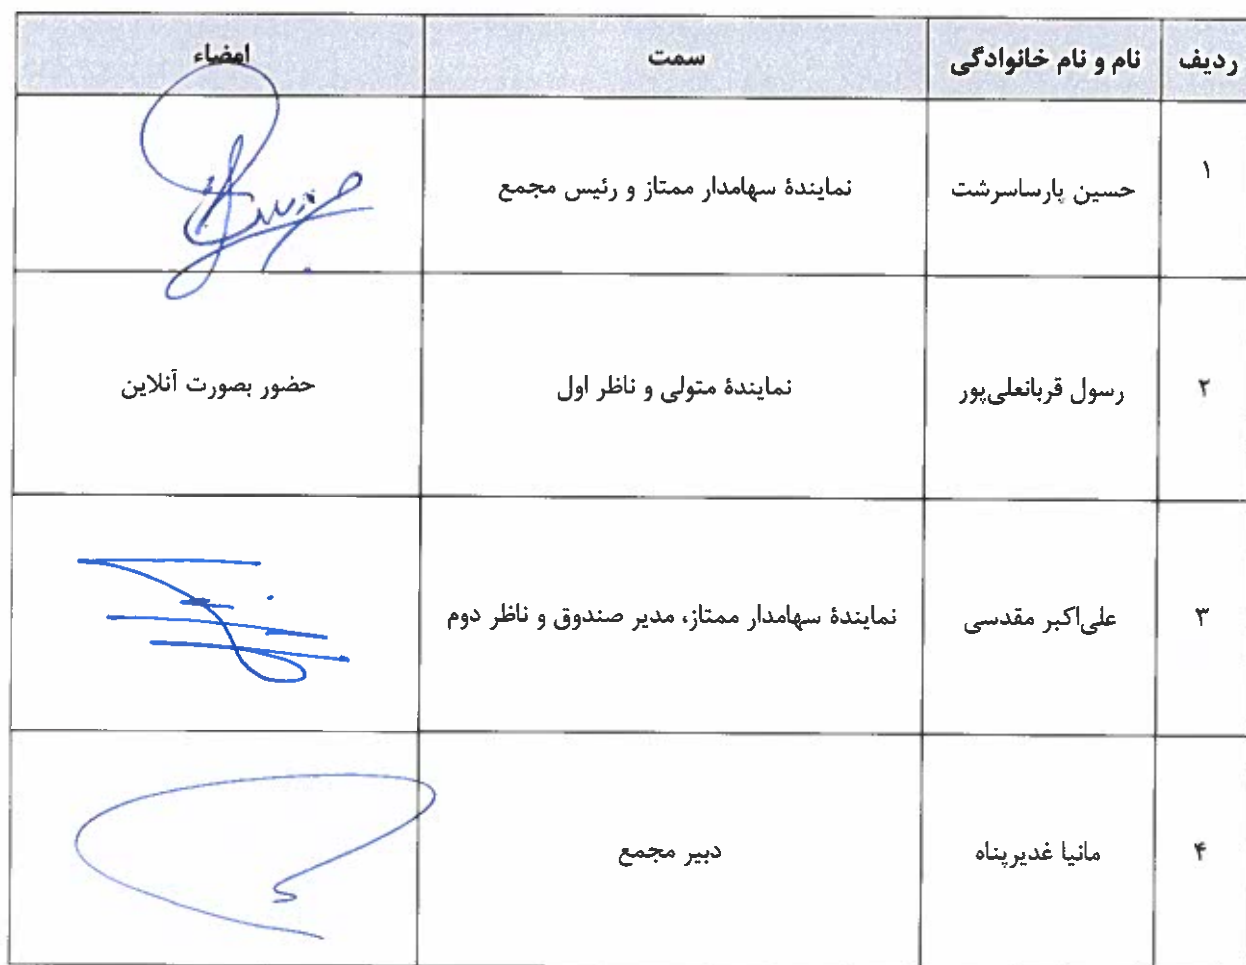 ردیف نام و نام خانوادگی سمت امضاء
۱ حسین پارساسرشت نمایندهٔ سهامدار ممتاز و رئیس مجمع
۲ رسول قربانعلی‌پور نمایندهٔ متولی و ناظر اول حضور بصورت آنلاین
۳ علی‌اکبر مقدسی نمایندهٔ سهامدار ممتاز، مدیر صندوق و ناظر دوم
۴ مانیا غدیرپناه دبیر مجمع